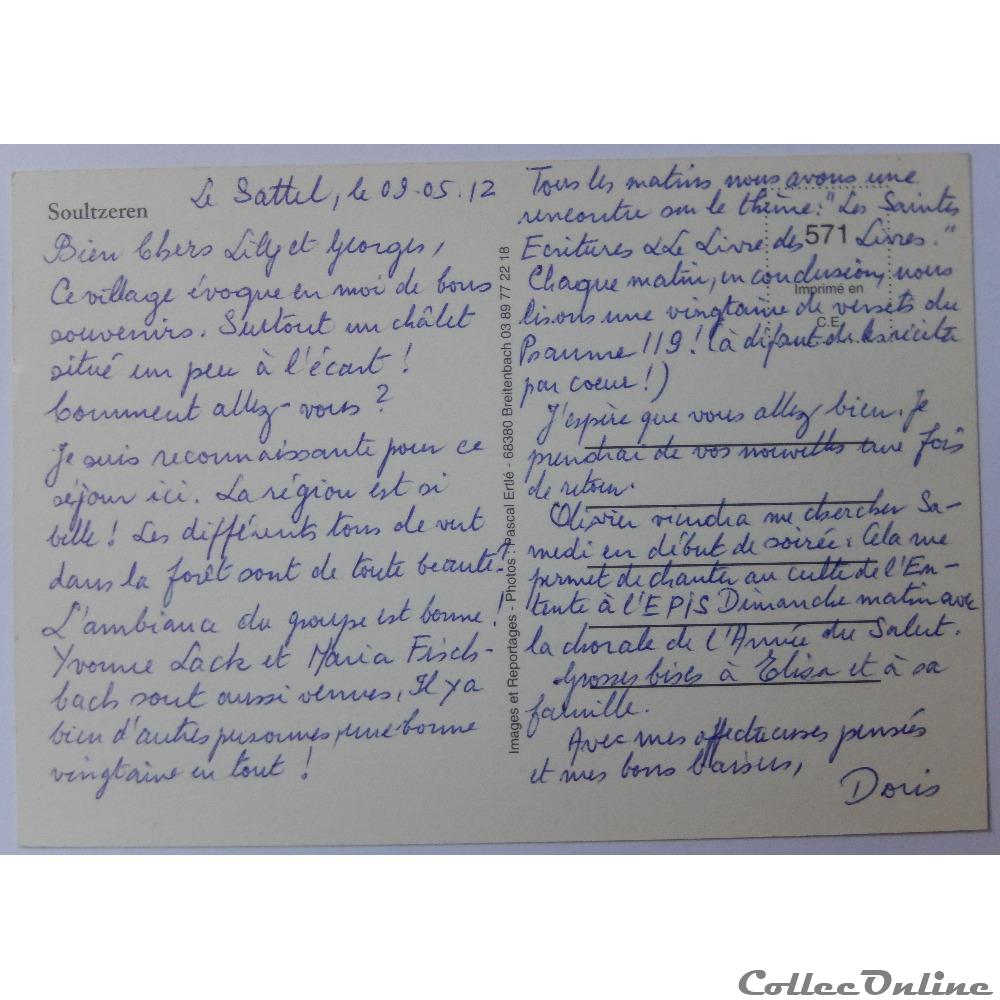 Soultzeren
Le Sattel, le 09-05.12
Bien Chers Lily et Georges,
Ce village évoque en moi de bons
souvenirs. Surtout un châlet
situé un peu à l'écart !
Comment allez-vous ?
Je suis reconnaissante pour ce
séjour ici. La région est si
belle ! Les différents tons de vert
dans la forêt sont de toute beauté !
L'ambiance du groupe est bonne !
Yvonne Lack et Maria Fisch-
bach sont aussi venues, Il y a
bien d'autres personnes, une bonne
vingtaine en tout !
Images et Reportages - Photos : Pascal Ertlé - 68380 Breitenbach 03 89 77 22 18
Tous les matins nous avons une
rencontre sur le thème : "Les Saintes
Ecritures Le Livre des Livres."
571
Chaque matin, en conclusion, nous
Imprimé en
lisons une vingtaine de versets du
C.E.
Psaume 119 ! (à défaut de les réciter
par coeur !)
J'espère que vous allez bien. Je
prendrai de vos nouvelles une fois
de retour.
Olivier viendra me chercher Sa-
medi en début de soirée. Cela me
permet de chanter au culte de l'En-
tente à l'EPIS Dimanche matin avec
la chorale de l'Armée du Salut.
Grosses bises à Elisa et à sa
famille.
Avec mes affectueuses pensées
et mes bons baisers,
Doris
CollecOnline